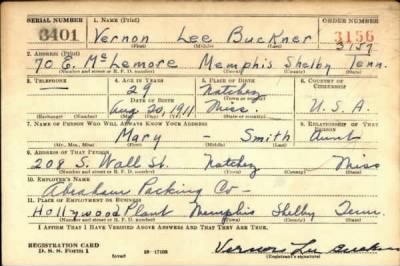 SERIAL NUMBER 1. NAME (Print) ORDER NUMBER
3401 Vernon Lee Buckner 3156
(First) (Middle) (Last) 3157
2. ADDRESS (Print)
70 E. McLemore Memphis Shelby Tenn.
(Number and street or R. F. D. number) (Town) (County) (State)
3. TELEPHONE 4. AGE IN YEARS 5. PLACE OF BIRTH 6. COUNTRY OF CITIZENSHIP
29 Natchez
DATE OF BIRTH (Town or county)
Aug 20, 1911 Miss. U.S.A.
(Exchange) (Number) (Mo.) (Day) (Yr.) (State or country)
7. NAME OF PERSON WHO WILL ALWAYS KNOW YOUR ADDRESS 8. RELATIONSHIP OF THAT PERSON
Mary - Smith Aunt
(Mr., Mrs., Miss) (First) (Middle) (Last)
9. ADDRESS OF THAT PERSON
208 S. Wall St. Natchez Miss
(Number and street or R. F. D. number) (Town) (County) (State)
10. EMPLOYER'S NAME
Abraham Packing Co -
11. PLACE OF EMPLOYMENT OR BUSINESS
Hollywood Plant Memphis Shelby Tenn.
(Number and street or R. F. D. number) (Town) (County) (State)
I AFFIRM THAT I HAVE VERIFIED ABOVE ANSWERS AND THAT THEY ARE TRUE.
REGISTRATION CARD
D. S. S. FORM 1 Vernon Lee Buckner
(over) (Registrant's signature)